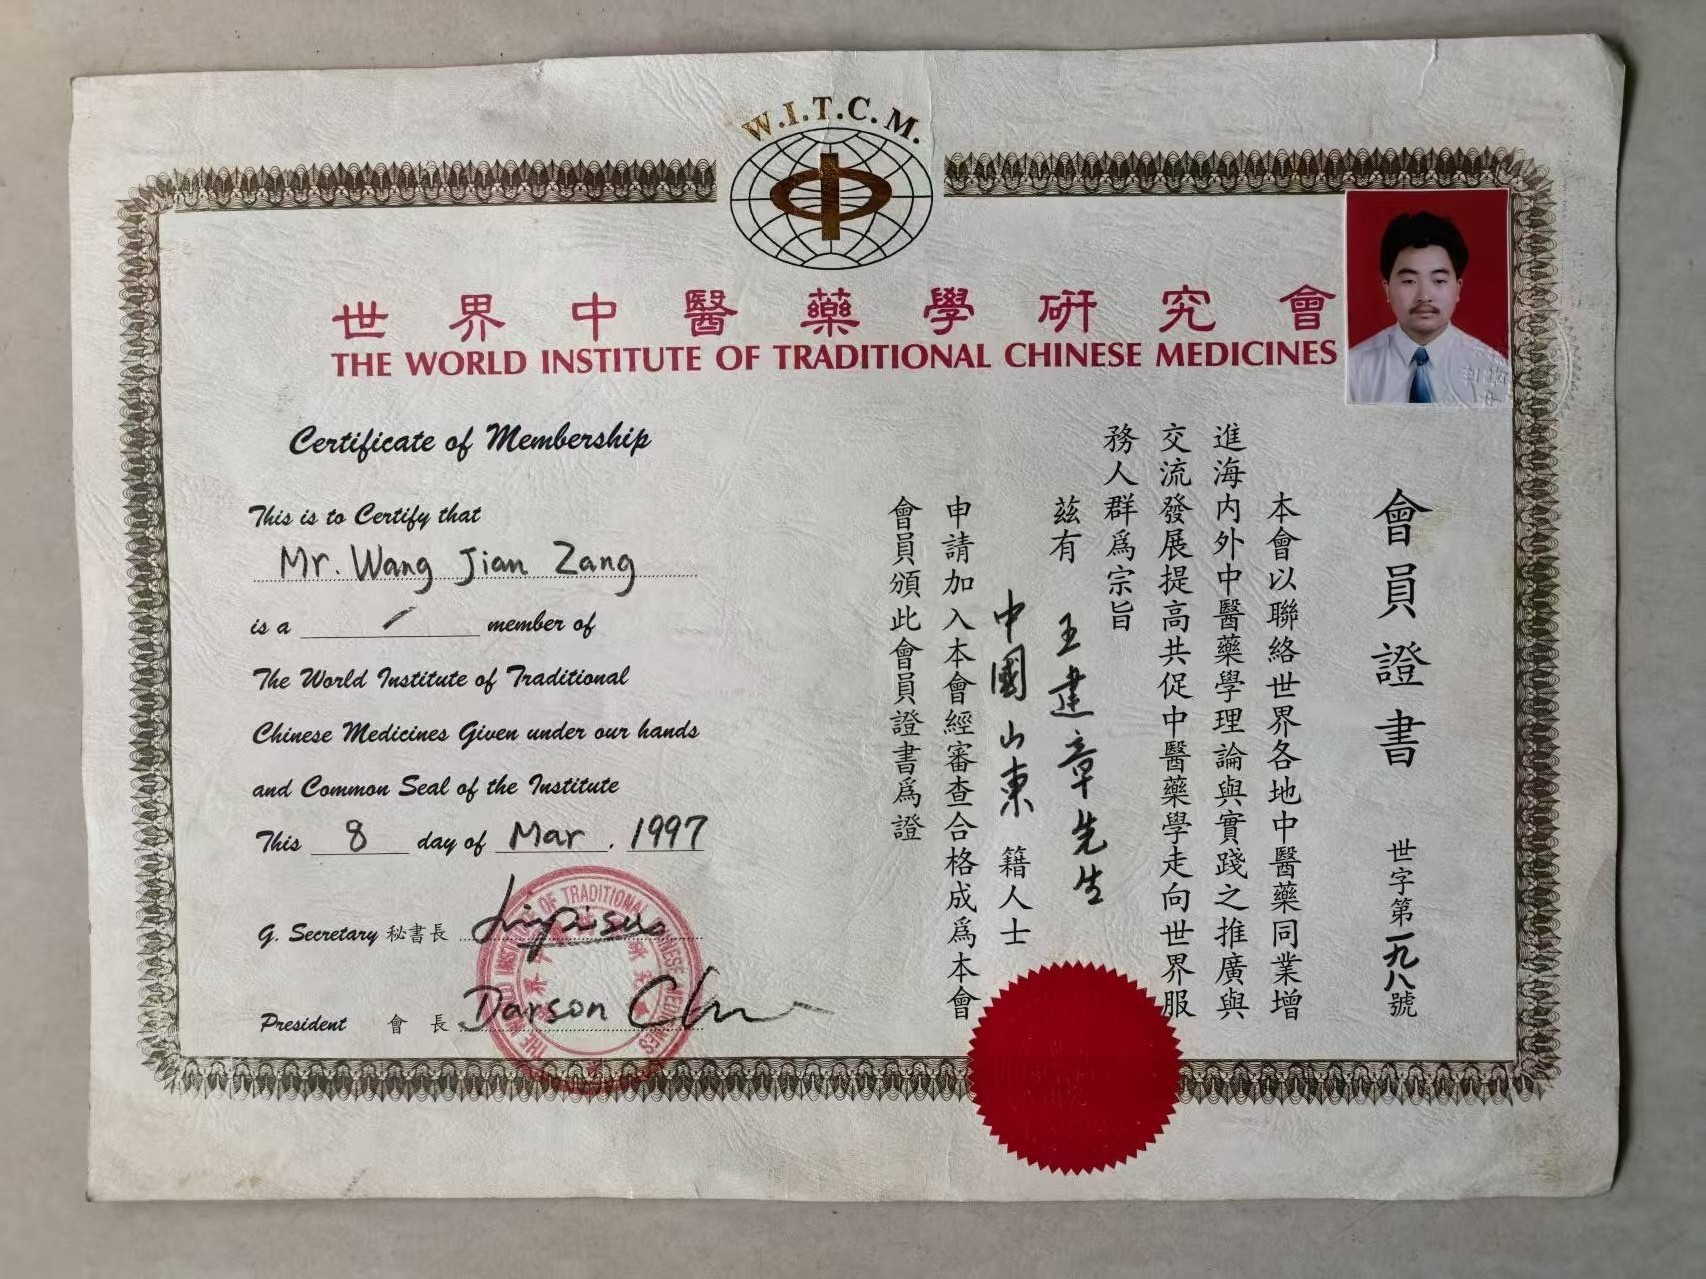 W.I.T.C.M.
世界中醫藥學研究會
THE WORLD INSTITUTE OF TRADITIONAL CHINESE MEDICINES
Certificate of Membership
This is to Certify that
Mr. Wang Jian Zang
is a / member of
The World Institute of Traditional
Chinese Medicines Given under our hands
and Common Seal of the Institute
This 8 day of Mar . 1997
G. Secretary 秘書長
President 會長 Darson
會員證書 世字第一九八號
本會以聯絡世界各地中醫藥同業增
進海内外中醫藥學理論與實踐之推廣與
交流發展提高共促中醫藥學走向世界服
務人群爲宗旨
茲有 王建章先生
中國山東 籍人士
申請加入本會經審查合格成爲本會
會員頒此會員證書爲證
OF TRADITIONAL